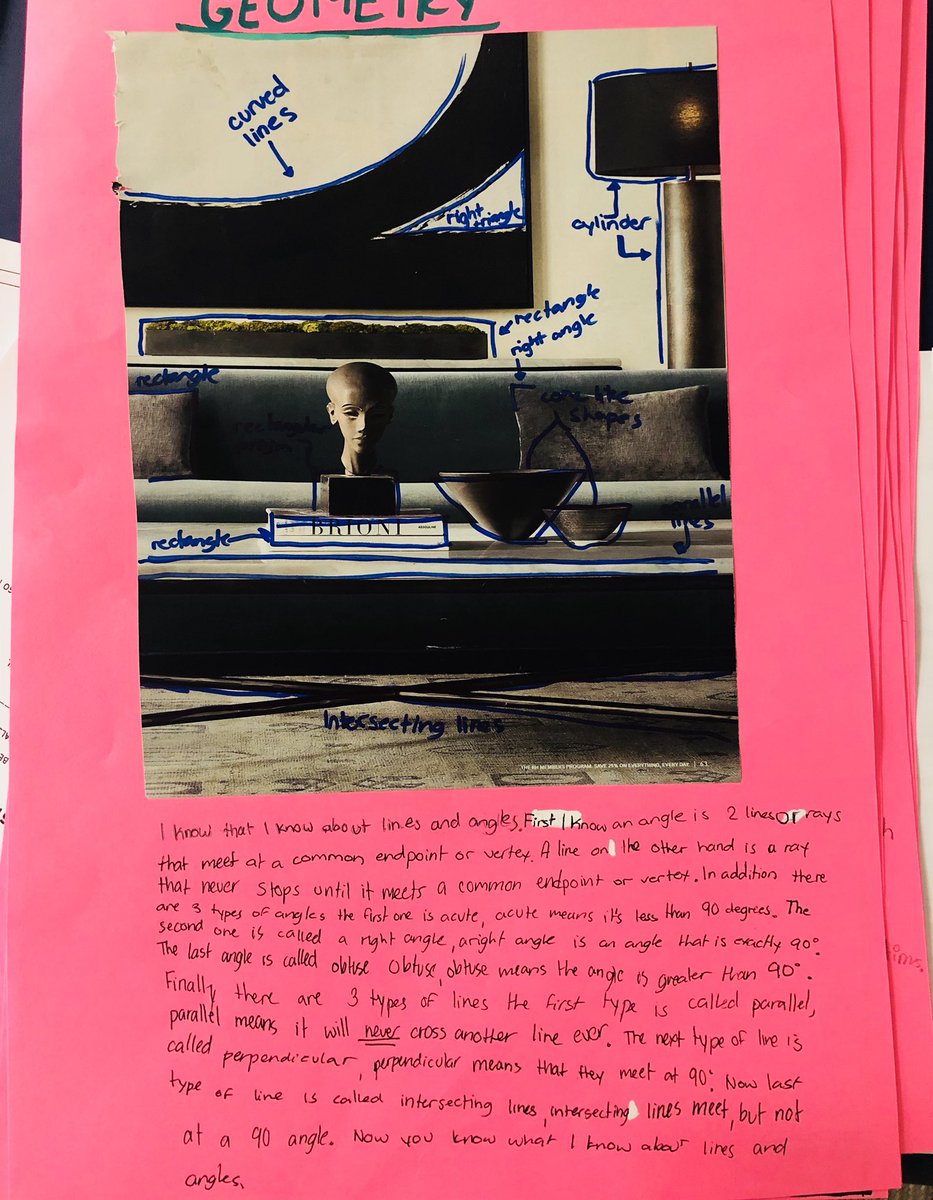 GEOMETRY
curved
lines
right
triangle
cylinder
rectangle
right angle
rectangle
cone like
shapes
rectangular
prism
BRIONI
ASSOULINE
rectangle
parallel
lines
Intersecting lines
THE RH MEMBERS PROGRAM. SAVE 25% ON EVERYTHING, EVERY DAY. | 61
I know that I know about lines and angles. First I know an angle is 2 lines or rays
that meet at a common endpoint or vertex. A line on the other hand is a ray
that never stops until it meets a common endpoint or vertex. In addition there
are 3 types of angles the first one is acute, acute means it's less than 90 degrees. The
second one is called a right angle, aright angle is an angle that is exactly 90°.
The last angle is called obtuse Obtuse, obtuse means the angle is greater than 90°.
Finally there are 3 types of lines the first type is called parallel,
parallel means it will never cross another line ever. The next type of line is
called perpendicular, perpendicular means that they meet at 90°. Now last
type of line is called intersecting lines, intersecting lines meet, but not
at a 90 angle. Now you know what I know about lines and
angles.